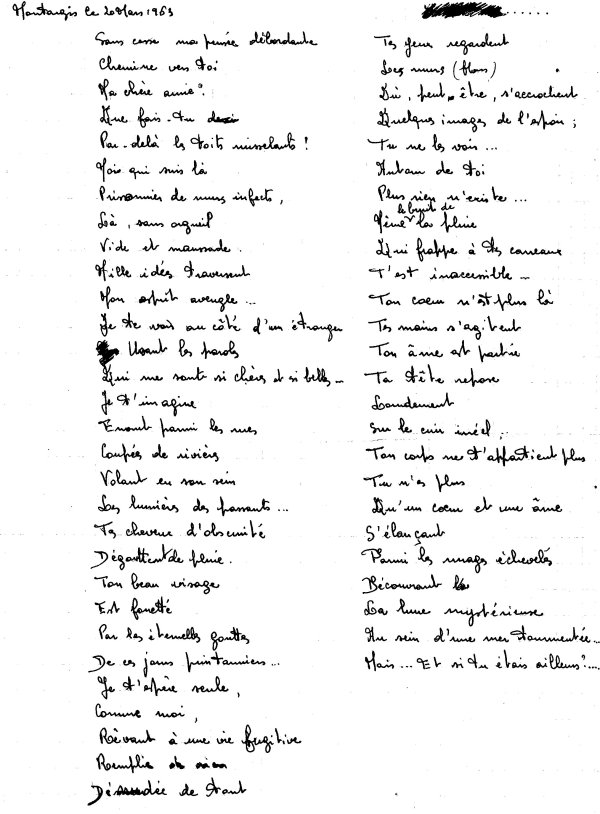 Montargis le 20 Mars 1963
Sans cesse ma pensée débordante
Chemine vers toi
Ma chère amie.
Que fais-tu
Par-delà les toits ruisselants !
Moi qui suis là
Prisonnier de murs infects,
Là, sans orgueil
Vide et maussade.
Mille idées traversent
Mon esprit aveugle...
Je te vois au côté d'un étranger
Usant les paroles
Qui me sont si chères et si belles...
Je t'imagine
Errant parmi les rues
Coupées de rivières
Volant en son sein
Les lumières des passants...
Tes cheveux d'obscurité
Dégouttent de pluie.
Ton beau visage
Est fouetté
Par les éternelles gouttes
De ces jours printanniers...
Je t'espère seule,
Comme moi,
Rêvant à une vie fugitive
Remplie de rien
Dénudée de tout
.......
Tes yeux regardent
Les murs (blancs)
Où, peut-être, s'accrochent
Quelques images de l'espoir ;
Tu ne les vois...
Autour de toi
Plus rien n'existe...
Même le bruit de la pluie
Qui frappe à tes carreaux
T'est inaccessible...
Ton coeur n'est plus là
Tes mains s'agitent
Ton âme est partie
Ta tête repose
Lourdement
Sur le cuir irréel...
Ton corps ne t'appartient plus
Tu n'es plus
Qu'un coeur et une âme
S'élançant
Parmi les nuages échevelés
Découvrant
La lune mystérieuse
Au sein d'une mer tourmentée...
Mais... Et si tu étais ailleurs ?....